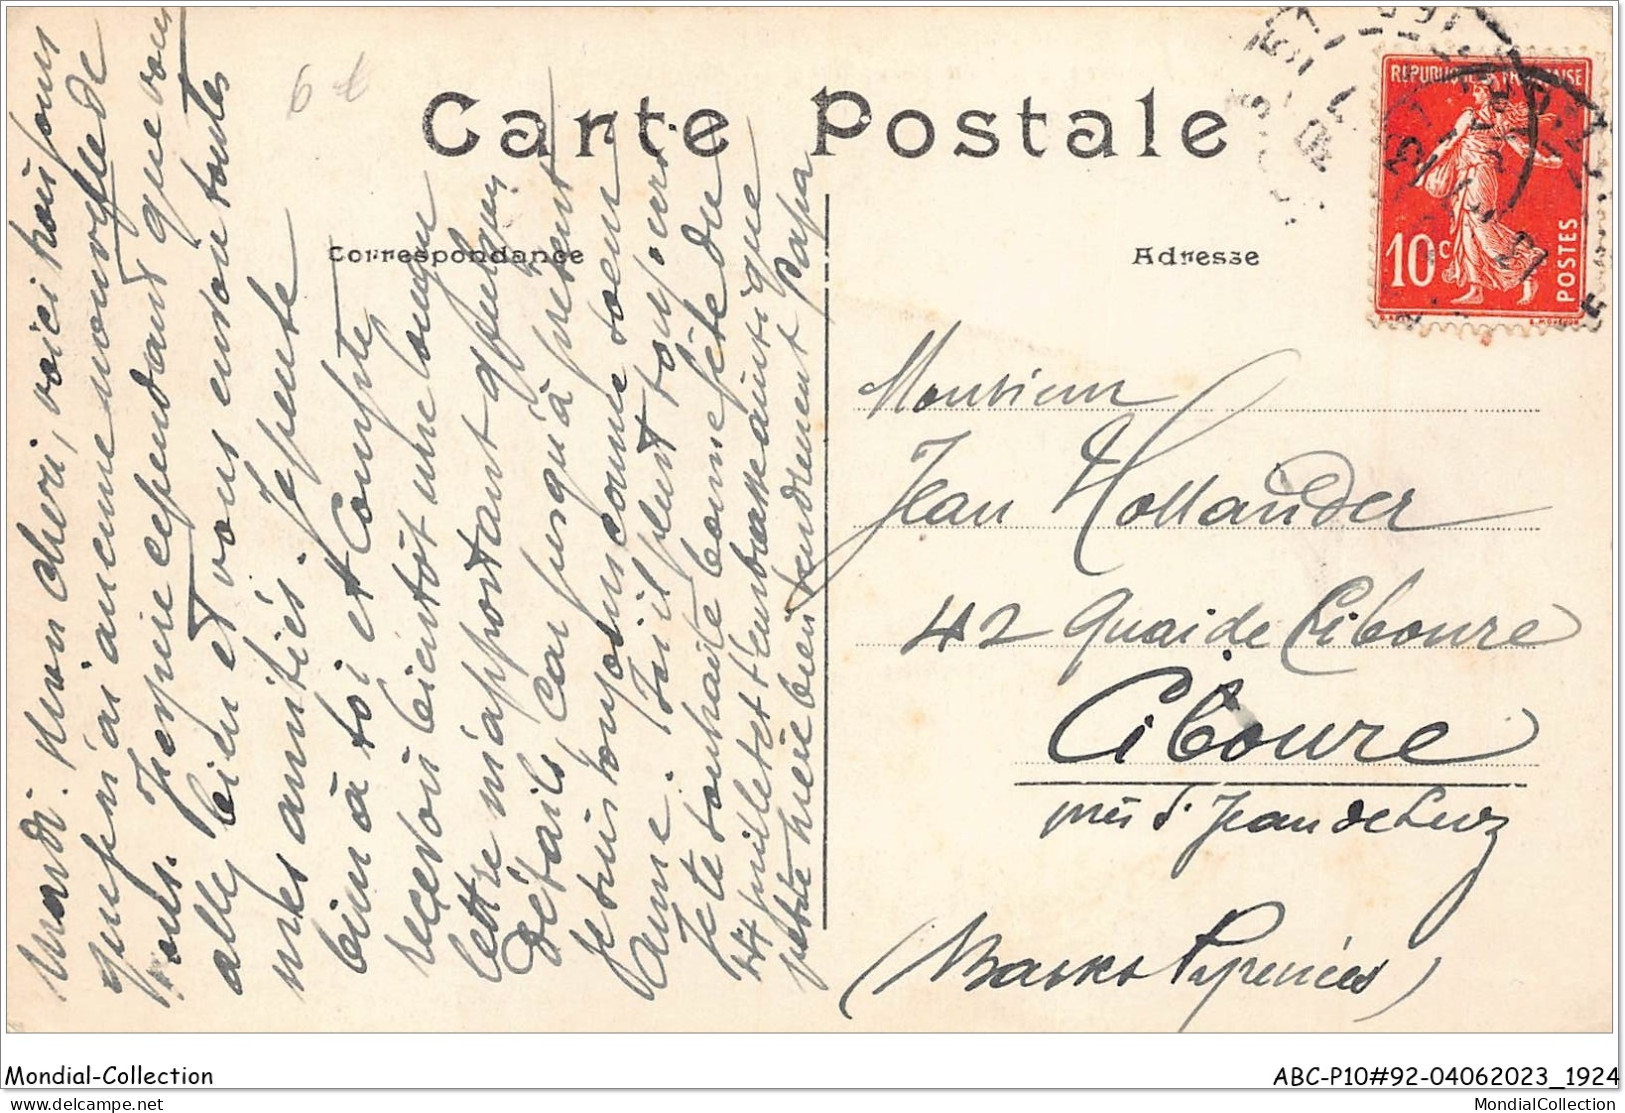 Carte Postale
Correspondance
Adresse
REPUBLIQUE FRANÇAISE
10c
POSTES
6 €
Mardi. Mon cheri, voici trois jours
que je n'ai aucune nouvelle de
vous. J'espère cependant que vous
allez bien et vous envoie toutes
mes amitiés. Je pense
bien à toi et compte
recevoir bientôt une longue
lettre m'apportant quelques
détails, car jusqu'à présent
je suis toujours comme soeur
Anne. Ici il pleut toujours
Je te souhaite bonne fête du
14 juillet et t'embrasse ainsi que
petite mère bien tendrement Papa
Monsieur
Jean Hollander
42 Quai de Ciboure
Ciboure
près St Jean de Luz
(Basses Pyrénées)
Mondial-Collection
ABC-P10#92-04062023_1924
delcampe.net
MondialCollection